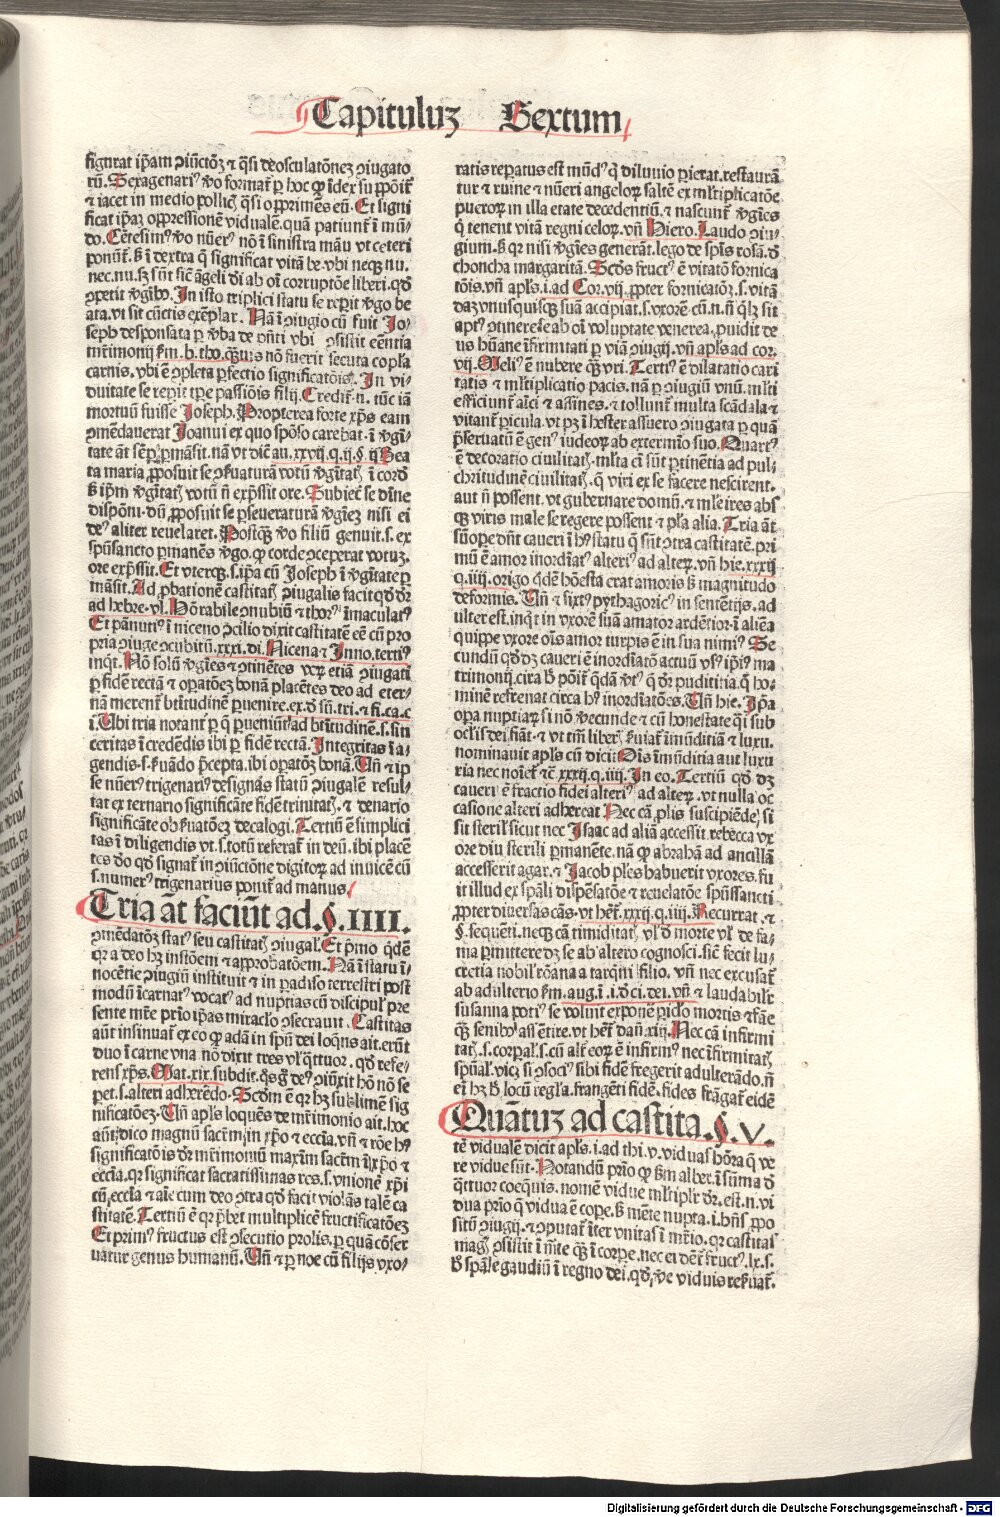 Capituluz Sextum
figurat ip̄am ꝯiūctōꝫ ⁊ q̄si deosculatōneꝫ ꝯiugato
rū. Sexagenariꝰ v̓o format᷑ ꝑ hoc ꝙ īdex suꝑpōit᷑
⁊ iacet in medio pollicꝭ q̄si opprimēs eū. Et signi
ficat ip̄aꝫ oppressionē vidualē. quā patiunt᷑ ī mū-
do. Cētesimꝰ v̓o nūerꝰ nō ī sinistra māu vt ceteri
ponūt᷑. s̄ ī dextra q̄ significat vitā be. vbi neqꝫ nu.
nec. nu. sꝫ sunt sic̄ āgeli dī ab oī corruptōe liberi. qd̄
ꝯpetit v̓gībꝰ. In isto triplici statu se reꝑit v̓go be
ata. vt sit cūctis exēplar. Nā ī ꝯiugio cū fuit Jo-
seph desponsata ꝑ v̓ba de p̄nti vbi ꝯsistit eēntia
mr̄imonij s̄m. b. tho. qūis nō fuerit secuta copla
carnis. vbi ē ꝯpleta ꝑfectio significatōis. In vi-
duitate se reꝑit tꝑe passiōis filij. Credit᷑. n. tūc iā
mortuū fuisse Joseph. Propterea forte xp̄s eam
ꝯmēdauerat Joanni ex quo spōso carebat. ī v̓gī-
tate āt sēꝑ ꝑmāsit. nā vt dic̄ au. xxvij. q. ij. §. ij Bea
ta maria ꝓposuit se ꝯẜuaturā votū v̓gītatꝭ ī cord̄
s̄ ip̄m v̓gītatꝭ votū n̄ exp̄ssit ore. Subiec̄ se diuīe
dispōni. dū ꝓposuit se ꝑseueraturā v̓gīeꝫ nisi ei
deꝰ aliter reuelaret. Postqꝫ v̓o filiū genuit. s. ex
spūsancto ꝑmanēs v̓go. ꝙ corde ꝯceperat votuꝫ.
ore exp̄ssit. Et vterqꝫ. s. ip̄a cū Joseph ī v̓gītate ꝑ
māsit. Ad ꝓbationē castitatꝭ ꝯiugalis facit qd̄ dr̄
ad hebre. vl. Honorabile ꝯnubiū ⁊ thorꝰ īmaculatꝰ
Et panutiꝰ ī niceno ꝯcilio dixit castitatē eē cū pro
pria ꝯiuge ꝯcubitū. xxxi. di. Nicena ⁊ Inno. tertiꝰ
inq̇t. Nō solū v̓gīes ⁊ ꝯtinētes veꝝ etiā ꝯiugati
ꝑ fidē rectā ⁊ oꝑatōeꝫ bonā placētes deo ad eter-
nā merent᷑ btītudinē ꝑuenire. ex. d̄ sū. tri. ⁊ fi. ca. c
ī. Ubi tria notant᷑ ꝑ q̄ ꝑueniūt᷑ ad btītudinē. s. sin
ceritas ī credēdis ibi ꝑ fidē rectā. Integritas ī a-
gendis. s. ẜuādo p̄cepta. ibi oꝑatōꝫ bonā. Uñ ⁊ ip̄
se nūerꝰ trigenariꝰ designās statū ꝯiugalē resul-
tat ex ternario significāte fidē trinitatꝭ. ⁊ denario
significāte obẜuatōeꝫ decalogi. Tertiū ē simplici
tas ī diligendis vt. s. totū referat᷑ in deū. ibi placē
tes d̓o qd̄ signat᷑ in ꝯiūctiōne digitoꝝ ad inuicē cū
s. numerꝰ trigenarius ponit᷑ ad manus.
Tria āt faciūt ad. §. IIII.
ꝯmēdatōꝫ statꝰ seu castitatꝭ ꝯiugal᷑. Et p̄mo q̇dē
qꝛ a deo hꝫ instōem ⁊ approbatōem. Nā ī statu ī-
nocētie ꝯiugiū instituit ⁊ in ꝑadiso terrestri post
modū īcarnatꝰ vocatꝰ ad nuptias cū discipul᷑ pre
sente mr̄e prīo ip̄as miraclo ꝯsecrauit. Castitas
aūt insinuat᷑ ex eo ꝙ adā in spū dei loq̄ns ait. erūt
duo ī carne vna nō dixit tres vl᷑ q̇ttuor. qd̄ refe-
rens xp̄s. Mat. xix. subdit. q̄s g̓ deꝰ ꝯiūxit hō nō se
ꝑet. s. alteri adherēdo. Scd̄m ē qꝛ hꝫ sublimē sig
nificatōeꝫ. Uñ apls loquēs de mr̄imonio ait. hoc
aūt dico magnū sacrm̄ in xp̄o ⁊ eccīa. vñ ⁊ rōe hꝰ
significatōis dr̄ mr̄imoniū maxīm sacrm̄ ī xp̄o ⁊
eccīa. qꝛ significat sacratissimas res. s. vnionē xp̄i
cū eccīa ⁊ aīe cum deo ꝯtra qd̄ facit violās talē ca
stitatē. Tertiū ē qꝛ p̄bet multiplicē fructificatōeꝫ
Et primꝰ fructus est ꝯsecutio prolis. ꝑ quā cōser
uatur genus humanū. Uñ ⁊ ꝑ noe cū filijs vxo-
ratis reꝑatus est mūdꝰ q̇ diluuio ꝑierat. restaurā
tur ⁊ ruine ⁊ nūeri angeloꝝ saltē ex ml̄tiplicatōe
pueroꝝ in illa etate decedentiū. ⁊ nascunt᷑ v̓gīes
q̄ tenent vitā regni celoꝝ. vñ Hiero. Laudo ꝯiu-
gium. s̄ qꝛ nisi v̓gīes generāt. lego de spīs rosā. d̄
choncha margaritā. Scd̄s fructꝰ ē vitatō fornica
tōis. vñ apls. i. ad Cor. vij. ꝓpter fornicatōꝫ. s. vitā
daꝫ vnusquisqꝫ suā accipiat. s. vxorē cū. n. n̄ q̇lꝫ sit
aptꝰ ꝯtinere se ab oī voluptate venerea. ꝓuidit de
us hūane īfirmitati ꝑ viā ꝯiugij. vñ apls ad cor.
vij. Meliꝰ ē nubere qꝫ vri. Tertiꝰ ē dilatatio cari
tatis ⁊ ml̄tiplicatio pacis. nā ꝑ ꝯiugiū vnū. ml̄ti
efficiunt᷑ aīci ⁊ affines. ⁊ tollunt᷑ multa scādala ⁊
vitant᷑ ꝑicula. vt pꝫ ī hester assuero ꝯiugata ꝑ quā
p̄seruatū ē genꝰ iudeoꝝ ab exterminio suo. Quartꝰ
ē decoratio ciuilitatꝭ. ml̄ta cī sūt ꝑtinētia ad pul-
chritudinē ciuilitatꝭ. q̄ viri ex se facere nescirent.
aut n̄ possent. vt gubernare domū. ⁊ ml̄ieres abs
qꝫ viris male se regere possent ⁊ pl̄a alia. Tria āt
sūope dn̄t caueri ī hꝰ statu q̄ sūt ꝯtra castitatē. pri
mū ē amor inordīatꝰ alteriꝰ ad alteꝝ. vñ hie. xxxij
q. iiij. origo q̇dē hōesta erat amoris s̄ magnitudo
deformis. Uñ ⁊ sixtꝰ pythagoricꝰ in sentētijs. ad
ulter est. inq̇t in vxorē suā amator ardētior. ī aliēa
quippe vxore oīs amor turpis ē in sua nimiꝰ. Se
cundū qd̄ dꝫ caueri ē inordīatō actuū vsꝰ ipīꝰ ma
trimonij. cira s̄ pōit᷑ qdā v̓tꝰ q̄ dr̄ pudititia. q̄ ho-
minē refrenat circa hꝰ inordīatōes. Uñ hie. Ip̄a
oꝑa nuptiaꝝ si nō v̓ecunde ⁊ cū honestate q̄i sub
oclīs dei fiāt. ⁊ vt tm̄ liberꝭ ẜuiat᷑ imūditiā ⁊ luxu.
nominauit apls cū dicit. Oīs īmūditia aut luxu
ria nec noīet᷑ ⁊ē xxxij. q. iiij. In eo. Tertiū qd̄ dꝫ
caueri ē fractio fidei alteriꝰ ad alteꝝ. vt nulla oc
casione alteri adhereat. Nec cā ꝓlis suscipiēde. si
sit steril᷑ sicut nec Isaac ad aliā accessit. rebecca vx
ore diu sterili ꝑmanēte. nā ꝙ abrahā ad ancillā
accesserit agar. ⁊ Jacob pl̄es habuerit vxores. fu
it illud ex spāli dispēsatōe ⁊ reuelatōe spūssancti
ꝓpter diuersas cās. vt hēt᷑. xxxij. q. iiij. Recurrat. ⁊
§. sequēti. neqꝫ cā timiditatꝭ vl᷑ d̄ morte vl᷑ de fa-
ma ꝑmittere dꝫ se ab altero cognosci. sic̄ fecit lu-
cretia nobil᷑ rōana a tarq̇ni filio. vñ nec excusat᷑
ab adulterio s̄m. aug. ī. i. d̄ ci. dei. vñ ⁊ laudabilr̄
susanna potiꝰ se voluit exponē ꝑiclō mortis ⁊ fāe
qꝫ senibꝰ assētire. vt hēt᷑ dañ. xiij. Nec cā infirmi
tatꝭ. s. corꝑal᷑. s. cū alt᷑ eoꝝ ē infirmꝰ nec īfirmitatꝭ
spūal᷑. vicꝫ si ꝯsociꝰ sibi fidē fregerit adulterādo. n̄
ei hꝫ s̄ locū regl̄a. frangēti fidē. fides frāgat᷑ eidē
Quātuꝫ ad castita. §. V.
tē vidualē dicit apls. i. ad thi. v. viduas hōra q̄ ve
re vidue sūt. Notandū prīo ꝙ s̄m alber. ī sūma d̄
q̇ttuor coequis. nomē vidue ml̄tiplr̄ dr̄. est. n. vi
dua prīo q̄ vidua ē corꝑe. s̄ mēte nupta. i. hn̄s ꝓpo
sitū ꝯiugij. ⁊ ꝯputat᷑ īter vnitas ī mr̄io. qꝛ castitas
magꝭ ꝯsistit ī mēte qꝫ ī corꝑe. nec ei det᷑ fructꝰ. lx. s.
s̄ spāle gaudiū ī regno dei. qd̄ v̓e viduis reẜuat᷑.
Digitalisierung gefördert durch die Deutsche Forschungsgemeinschaft - DFG